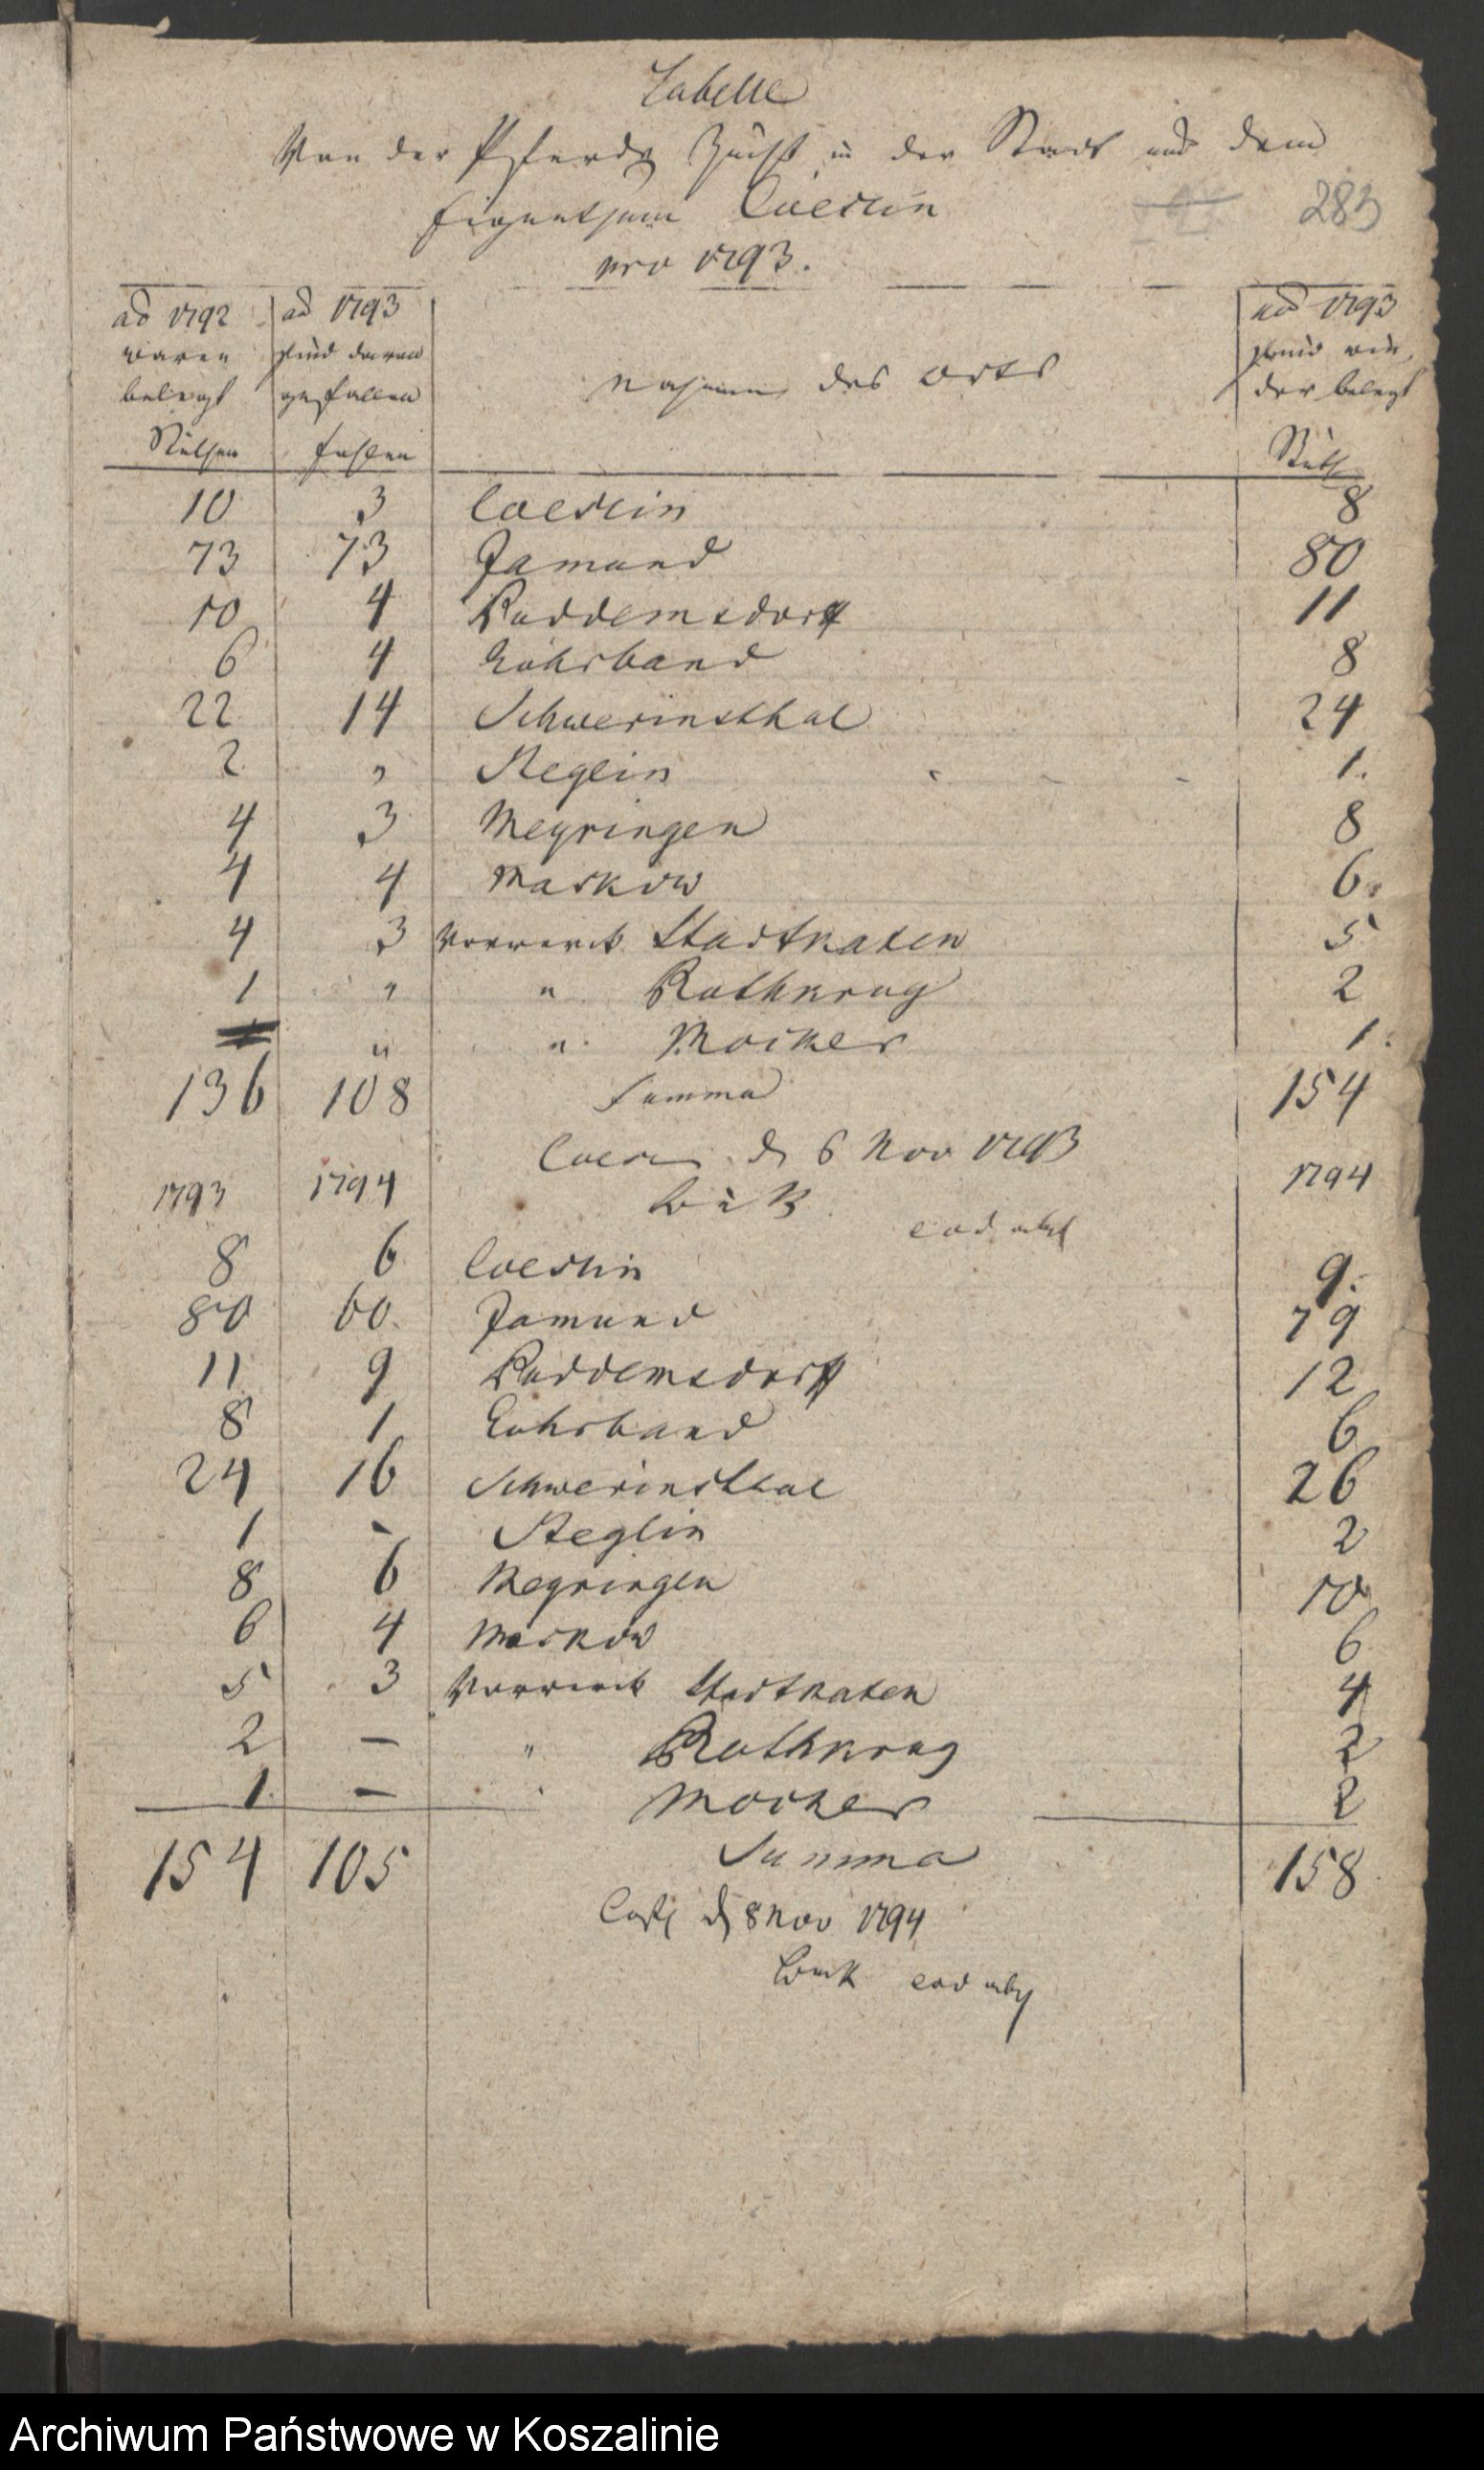 Tabelle
Von der Pferde Zucht in der Stadt und dem
Eigenthum Coeslin
283
pro 1793.
ad 1792 ad 1793 ad 1793
waren sind davon sind wie
belegt gefallen Nahmen des Orts der belegt
Stuthen Fohlen Stuth
10 3 Coeslin 8
73 73 Jamund 80
10 4 Puddemsdorff 11
6 4 Gohrband 8
22 14 Schwerinsthal 24
2 " Steglin 1.
4 3 Meyringen 8
4 4 Maskow 6.
4 3 Vorwerck Stadtkaten 5
1 " " Rothkrug 2
" " Mocker 1.
136 108 Summa 154
Coesl d 6 Nov 1793
1793 1794 1794
8 6 Coeslin 9.
80 60. Jamund 79
11 9 Puddemsdorff 12
8 1 Gohrband 6
24 16 Schwerinsthal 26
1 - Steglin 2
8 6 Meyringen 10
6 4 Maskow 6
5 3 Vorwerck Stadtkaten 4
2 — " Rothkrug 2
1. — " Mocker 2
154 105 Summa 158
Cosl d 8 Nov 1794
Archiwum Państwowe w Koszalinie